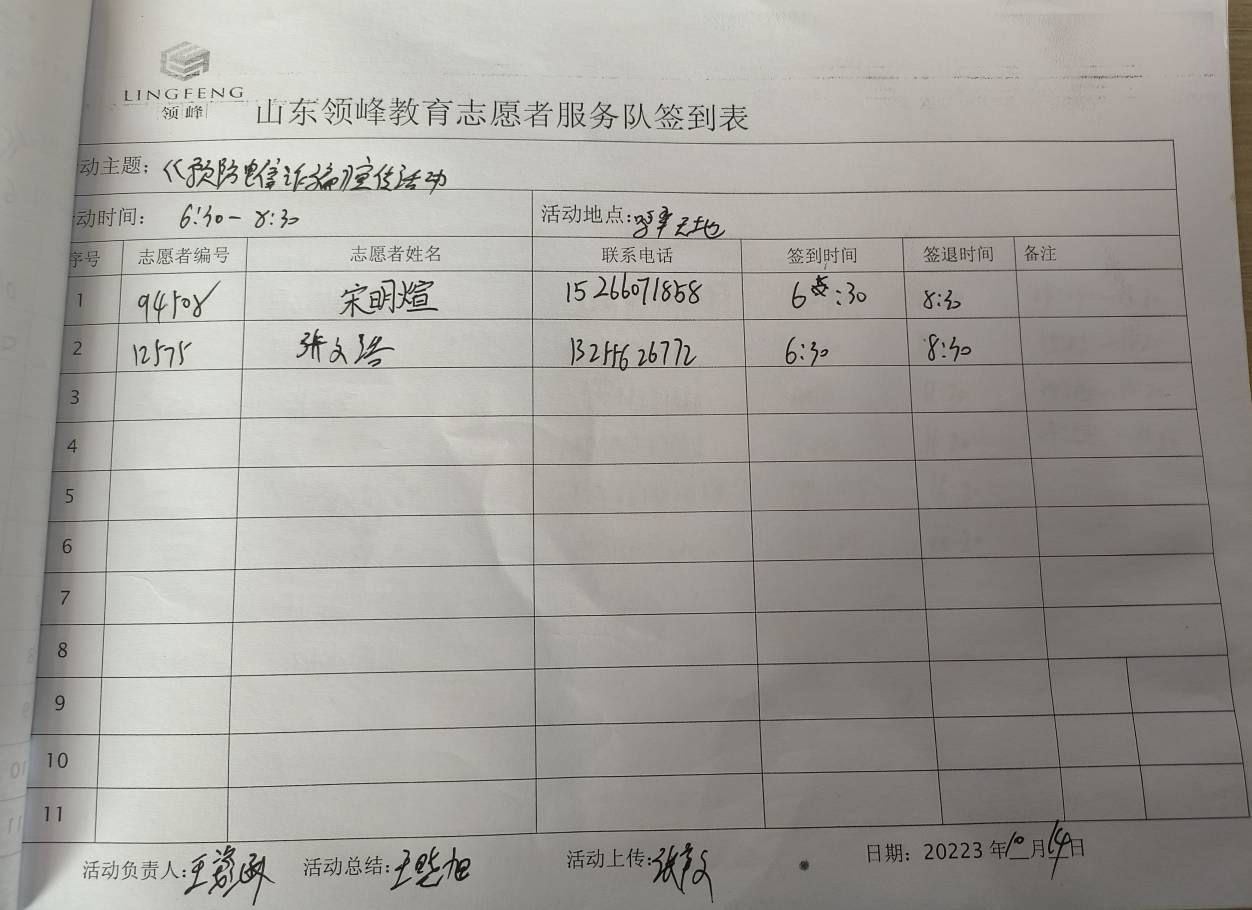 LINGFENG
领峰
山东领峰教育志愿者服务队签到表
动主题；《预防电信诈骗》宣传活动
动时间： 6:30-8:30 活动地点：天地
序号 志愿者编号 志愿者姓名 联系电话 签到时间 签退时间 备注
1 94508 宋明煊 15266071858 6:30 8:30
2 12575 张文浩 13255626772 6:30 8:30
3
4
5
6
7
8
9
10
11
活动负责人: 王 活动总结: 王晓旭 活动上传: 张文 日期：20223年10月14日